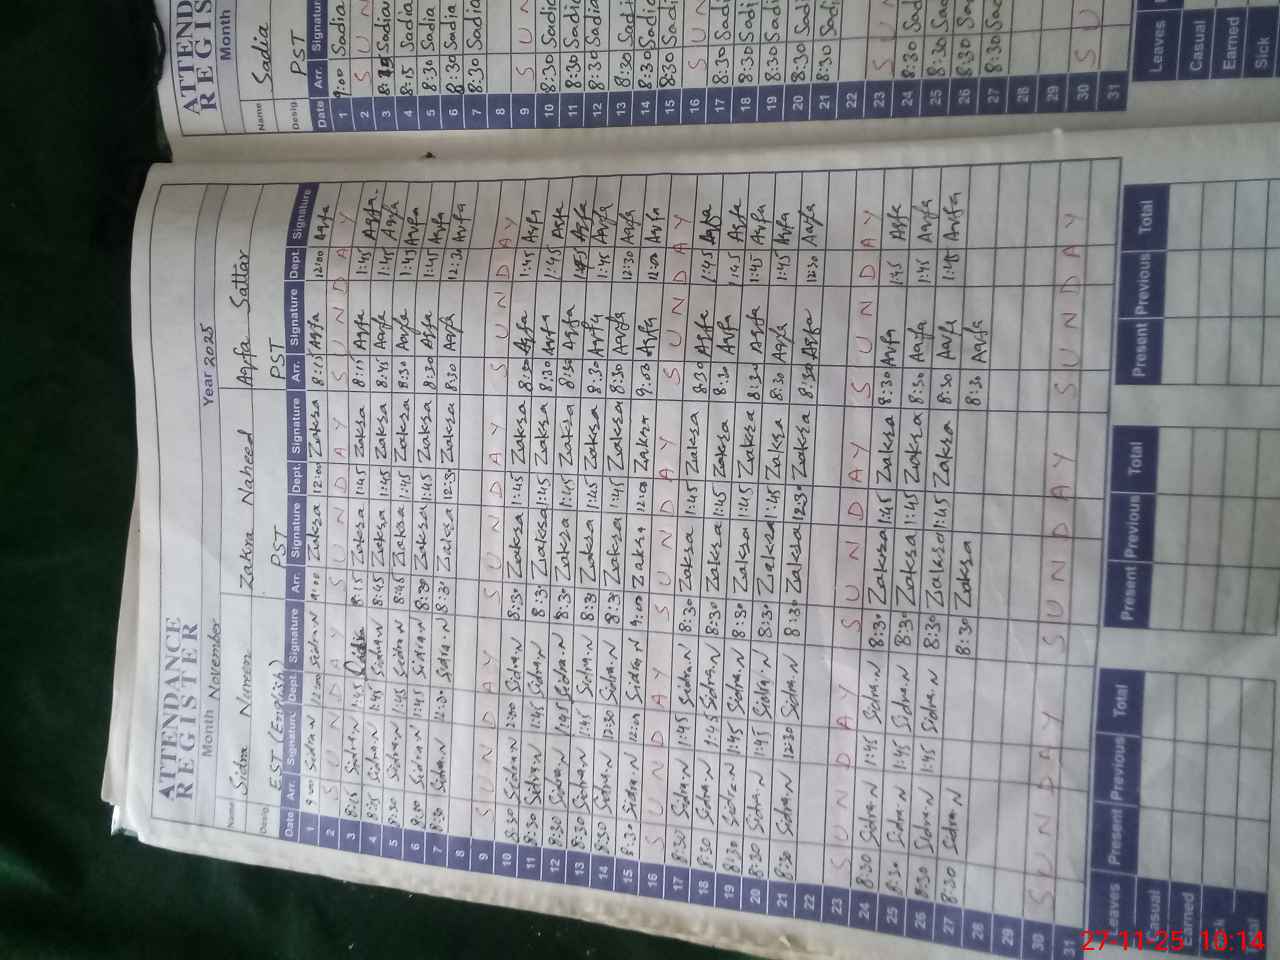 ATTENDANCE
REGISTER
Month November Year 2025
Name Sidra Nureen Zaksa Naheed Aqfa Sattar
Desig EST (English) PST PST
Date Arr. Signature Dept. Signature Arr. Signature Dept. Signature Arr. Signature Dept. Signature
1 9:00 Sidra.N 12:00 Sidra.N 9:00 Zaksa 12:00 Zaksa 8:15 Aqfa 12:00 Aqfa
2 SUNDAY SUNDAY SUNDAY
3 8:15 Sidra.N 1:45 8:15 Zaksa 1:45 Zaksa 8:15 Aqfa 1:45 Aqfa
4 8:15 Sidra.N 1:45 Sidra.N 8:45 Zaksa 1:45 Zaksa 8:45 Aqfa 1:45 Aqfa
5 8:30 Sidra.N 1:45 Sidra.N 8:45 Zaksa 1:45 Zaksa 8:30 Aqfa 1:45 Aqfa
6 8:30 Sidra.N 1:45 Sidra.N 8:30 Zaksa 1:45 Zaksa 8:30 Aqfa 1:45 Aqfa
7 8:30 Sidra.N 12:30 Sidra.N 8:30 Zaksa 12:30 Zaksa 8:30 Aqfa 12:30 Aqfa
8
9 SUNDAY SUNDAY SUNDAY
10 8:30 Sidra.N 2:00 Sidra.N 8:30 Zaksa 1:45 Zaksa 8:30 Aqfa 1:45 Aqfa
11 8:30 Sidra.N 1:45 Sidra.N 8:30 Zaksa 1:45 Zaksa 8:30 Aqfa 1:45 Aqfa
12 8:30 Sidra.N 1:45 Sidra.N 8:30 Zaksa 1:45 Zaksa 8:30 Aqfa 1:45 Aqfa
13 8:30 Sidra.N 1:45 Sidra.N 8:30 Zaksa 1:45 Zaksa 8:30 Aqfa 1:45 Aqfa
14 8:30 Sidra.N 12:30 Sidra.N 8:30 Zaksa 1:45 Zaksa 8:30 Aqfa 12:30 Aqfa
15 8:30 Sidra.N 12:00 Sidra.N 9:00 Zaksa 12:00 Zaksa 9:00 Aqfa 12:00 Aqfa
16 SUNDAY SUNDAY SUNDAY
17 8:30 Sidra.N 1:45 Sidra.N 8:30 Zaksa 1:45 Zaksa 8:30 Aqfa 1:45 Aqfa
18 8:30 Sidra.N 1:45 Sidra.N 8:30 Zaksa 1:45 Zaksa 8:30 Aqfa 1:45 Aqfa
19 8:30 Sidra.N 1:45 Sidra.N 8:30 Zaksa 1:45 Zaksa 8:30 Aqfa 1:45 Aqfa
20 8:30 Sidra.N 1:45 Sidra.N 8:30 Zaksa 1:45 Zaksa 8:30 Aqfa 1:45 Aqfa
21 8:30 Sidra.N 12:30 Sidra.N 8:30 Zaksa 12:30 Zaksa 8:30 Aqfa 12:30 Aqfa
22
23 SUNDAY SUNDAY SUNDAY
24 8:30 Sidra.N 1:45 Sidra.N 8:30 Zaksa 1:45 Zaksa 8:30 Aqfa 1:45 Aqfa
25 8:30 Sidra.N 1:45 Sidra.N 8:30 Zaksa 1:45 Zaksa 8:30 Aqfa 1:45 Aqfa
26 8:30 Sidra.N 1:45 Sidra.N 8:30 Zaksa 1:45 Zaksa 8:30 Aqfa 1:45 Aqfa
27 8:30 Sidra.N 8:30 Zaksa 8:30 Aqfa
28
29
30 SUNDAY SUNDAY SUNDAY
31
Leaves Present Previous Total Present Previous Total Present Previous Total
Casual
Earned
ATTEND
REGIS
Month
Name Sadia
Desig. PST
Date Arr. Signature
1 9:00 Sadia
2 SUN
3 Sadia
4 8:15 Sadia
5 8:30 Sadia
6 8:30 Sadia
7 8:30 Sadia
8
9 SUN
10 8:30 Sadia
11 8:30 Sadia
12 8:30 Sadia
13 8:30 Sadi
14 8:30 Sadi
15 8:30 Sadi
16 SUN
17 8:30 Sadi
18 8:30 Sadi
19 8:30 Sadi
20 8:30 Sadi
21 8:30 Sadi
22
23 SU
24 8:30 Sad
25 8:30 Sa
26 8:30 Sa
27 8:30 Sa
28
29
30 SU
31
Leaves
Casual
Earned
Sick
27-11-25 10:14